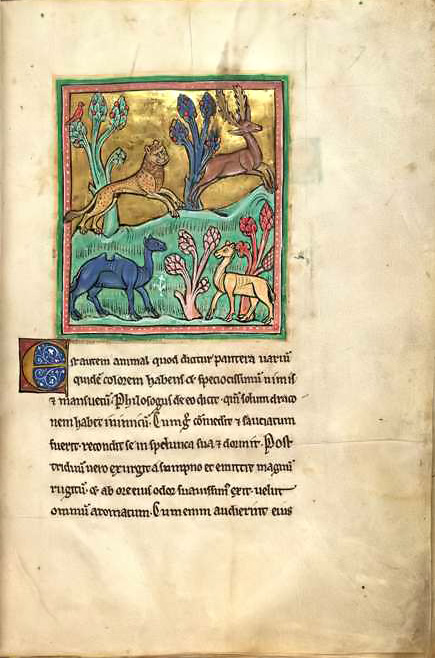 Est autem animal quod dicitur pantera uariū
quidē colorem habens et speciocissimū nimis
⁊ mansuetū. Phisologus de eo dicit. qm̄ solum draco
nem habet inimicū. Cum g̊ comederit ⁊ saciatum
fuerit. recondit se in spelunca sua ⁊ dormit. Post
triduū uero exurgit a sumpno et emittit magnū
rugitū. et ab ore eius odor suauissim᷒ exit. uelut
omniū aromatum. Cum enim audierint eius